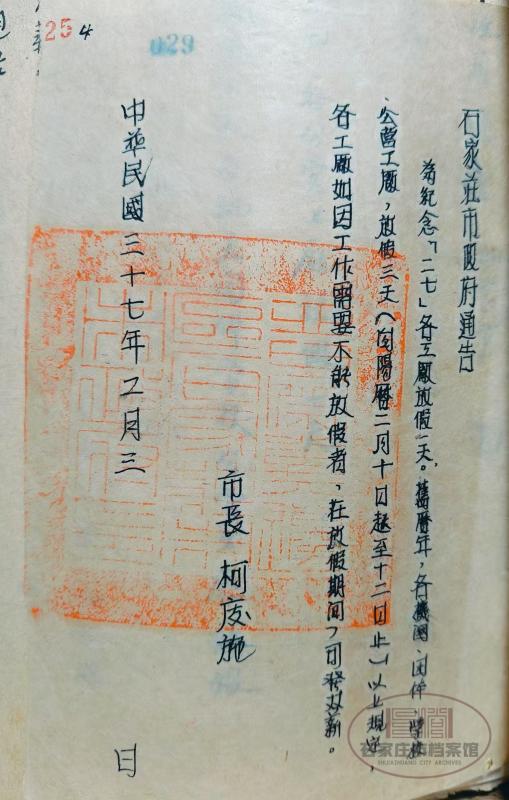 石家庄市政府通告
為紀念「二七」各工廠放假一天。舊曆年，各機関、团体、学校
公营工廠，放假三天（自陽曆二月十日起至十二日止）以上規定，
各工廠如因工作需要不能放假者，在放假期间，可發双薪。
市長 柯庆施
中華民國三十七年二月三日
254
029
石家庄市档案馆
SHIJIAZHUANG CITY ARCHIVES